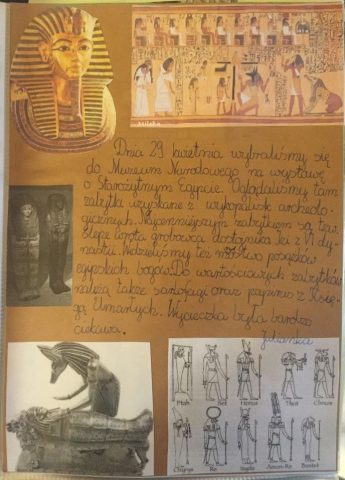 Dnia 29 kwietnia wybraliśmy się
do Muzeum Narodowego na wystawę
o Starożytnym Egipcie. Oglądaliśmy tam
zabytki uzyskane z wykopalisk archeolo-
gicznych. Najcenniejszym zabytkiem są tzw.
ślepe wrota grobowca dostojnika Izi z VI dy-
nastii. Widzieliśmy też mnóstwo posągów
egipskich bogów. Do wartościowych zabytków
należą także sarkofagi oraz papirus z Księ-
gi Umarłych. Wycieczka była bardzo
ciekawa.
Julianna
Ptah Set Horus Thot Chnum
Ozyrys Re Izyda Amon-Re Bastet